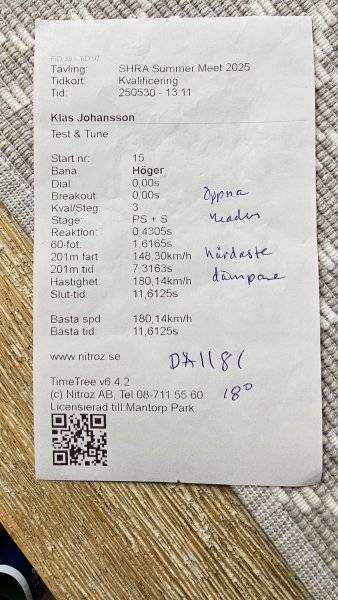 Tävling: SHRA Summer Meet 2025
Tidkort: Kvalificering
Tid: 250530 - 13 11
Klas Johansson
Test & Tune
Start nr: 15
Bana: Höger
Dial: 0,00s
Breakout 0,00s öppna
Kval/Steg: 3
Stage: PS + S
Reaktion: 0.4305s
60-fot: 1,6165s
201m fart 148,30km/h hårdaste
201m tid 7,3163s dämpare
Hastighet: 180,14km/h
Slut-tid: 11,6125s
Bästa spd 180,14km/h
Bästa tid: 11,6125s
www.nitroz.se
TimeTree v6.4.2
(c) Nitroz AB, Tel 08-711 55 60 18°
Licensierad till Mantorp Park